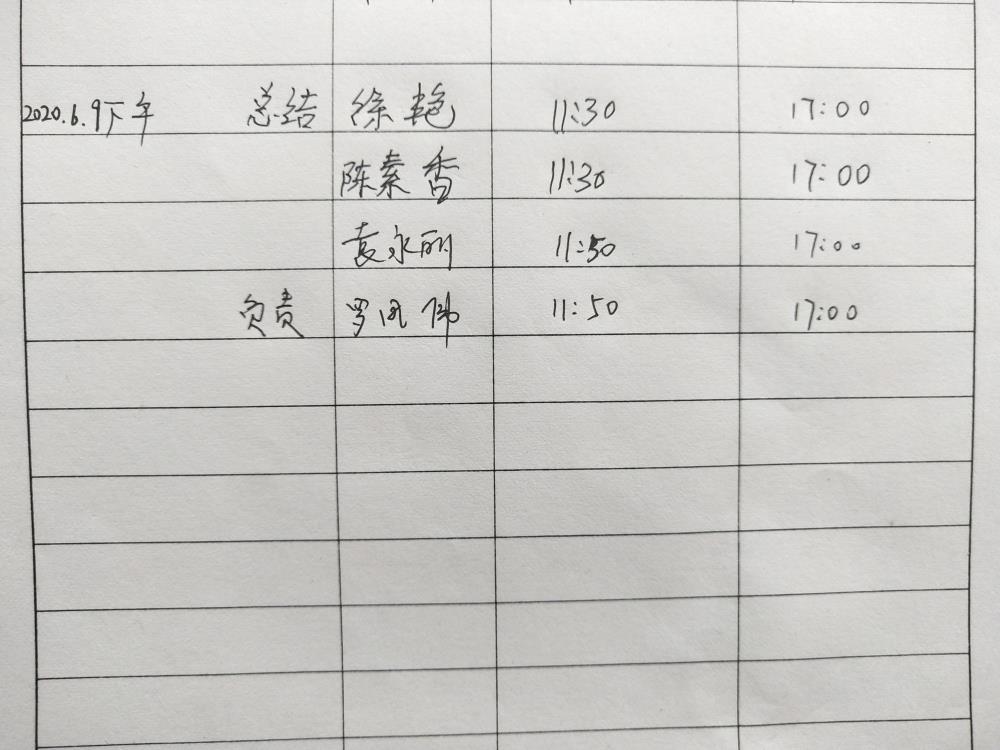 2020.6.9下午 总结 徐艳 11:30 17:00
陈素香 11:30 17:00
袁永丽 11:50 17:00
负责 罗凤 11:50 17:00